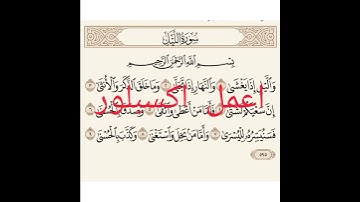 سُورَةُ اللَّيْلِ
بِسْمِ اللَّهِ الرَّحْمَٰنِ الرَّحِيمِ
وَاللَّيْلِ إِذَا يَغْشَىٰ ١ وَالنَّهَارِ إِذَا تَجَلَّىٰ ٢ وَمَا خَلَقَ الذَّكَرَ وَالْأُنثَىٰ ٣
اعمل اكسبلور
إِنَّ سَعْيَكُمْ لَشَتَّىٰ ٤ فَأَمَّا مَنْ أَعْطَىٰ وَاتَّقَىٰ ٥ وَصَدَّقَ بِالْحُسْنَىٰ ٦
فَسَنُيَسِّرُهُ لِلْيُسْرَىٰ ٧ وَأَمَّا مَن بَخِلَ وَاسْتَغْنَىٰ ٨ وَكَذَّبَ بِالْحُسْنَىٰ ٩
٥٩٥